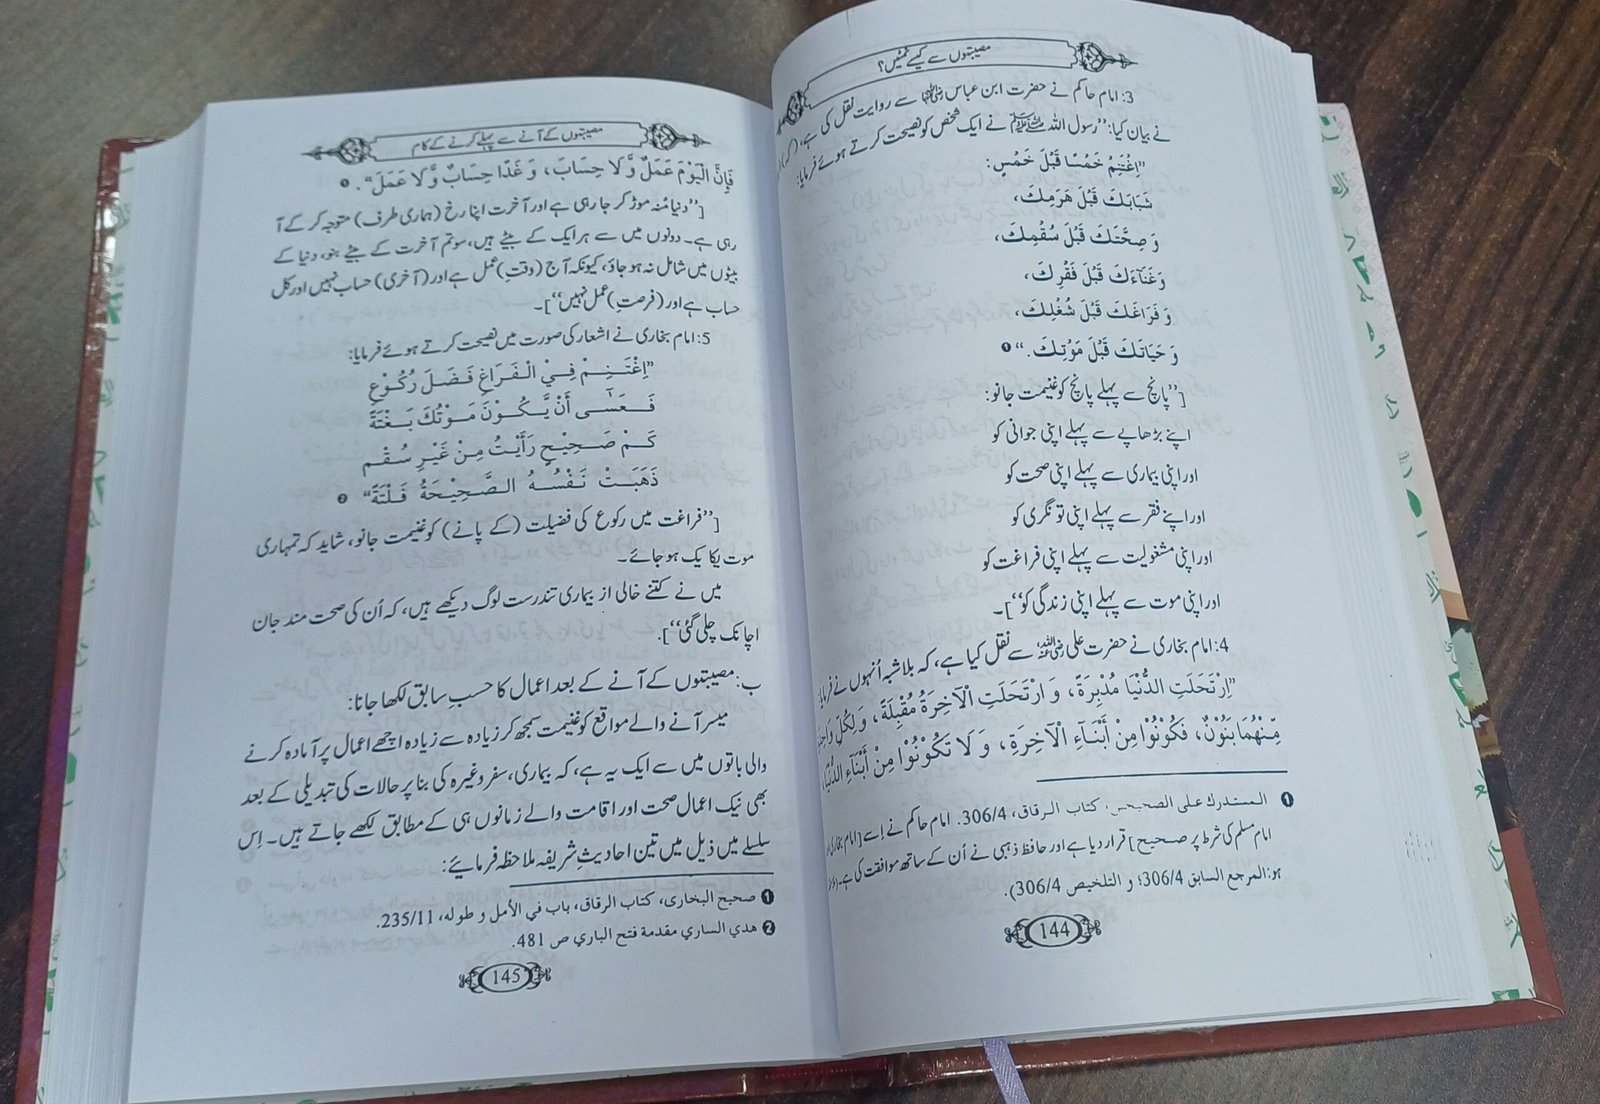 مصیبتوں سے کیسے نمٹیں؟
3: امام حاکم نے حضرت ابن عباس رضی اللہ عنہما سے روایت نقل کی ہے، (کہ)
نے بیان کیا: ”رسول اللہ ﷺ نے ایک شخص کو نصیحت کرتے ہوئے فرمایا:
”اِغْتَنِمْ خَمْسًا قَبْلَ خَمْسٍ:
شَبَابَكَ قَبْلَ هَرَمِكَ،
وَ صِحَّتَكَ قَبْلَ سُقْمِكَ،
وَغَنَاءَكَ قَبْلَ فَقْرِكَ،
وَ فَرَاغَكَ قَبْلَ شُغْلِكَ،
وَ حَيَاتَكَ قَبْلَ مَوْتِكَ.“ ❶
[”پانچ سے پہلے پانچ کو غنیمت جانو:
اپنے بڑھاپے سے پہلے اپنی جوانی کو
اور اپنی بیماری سے پہلے اپنی صحت کو
اور اپنے فقر سے پہلے اپنی تونگری کو
اور اپنی مشغولیت سے پہلے اپنی فراغت کو
اور اپنی موت سے پہلے اپنی زندگی کو“]۔
4: امام بخاری نے حضرت علی رضی اللہ عنہ سے نقل کیا ہے، کہ بلاشبہ اُنہوں نے فرمایا:
”اِرْتَحَلَتِ الدُّنْيَا مُدْبِرَةً، وَ ارْتَحَلَتِ الْآخِرَةُ مُقْبِلَةً، وَ لِكُلِّ
مِّنْهُمَا بَنُوْنٌ، فَكُوْنُوْا مِنْ أَبْنَاءِ الْآخِرَةِ، وَ لَا تَكُوْنُوْا مِنْ أَبْنَاءِ الدُّنْيَا،
❶ المستدرك على الصحيحين، كتاب الرقاق، 306/4. امام حاکم نے اسے [امام بخاری
امام مسلم کی شرط پر صحیح] قرار دیا ہے اور حافظ ذہبی نے اُن کے ساتھ موافقت کی ہے۔
ہو: المرجع السابق 306/4؛ و التلخيص 306/4).
144
مصیبتوں کے آنے سے پہلے کرنے کے کام
فَإِنَّ الْيَوْمَ عَمَلٌ وَّلَا حِسَابَ، وَ غَدًا حِسَابٌ وَّلَا عَمَلَ“. ❶
[”دنیا مُنہ موڑ کر جا رہی ہے اور آخرت اپنا رخ (ہماری طرف) متوجہ کر کے آ
رہی ہے۔ دونوں میں سے ہر ایک کے بیٹے ہیں، سو تم آخرت کے بیٹے بنو، دنیا کے
بیٹوں میں شامل نہ ہو جاؤ، کیونکہ آج (وقتِ) عمل ہے اور (آخری) حساب نہیں اور کل
حساب ہے اور (فرصتِ) عمل نہیں“]۔
5: امام بخاری نے اشعار کی صورت میں نصیحت کرتے ہوئے فرمایا:
”اِغْتَنِمْ فِيْ الْفَرَاغِ فَضْلَ رُكُوْعٍ
فَعَسٰى أَنْ يَّكُوْنَ مَوْتُكَ بَغْتَةً
كَمْ صَحِيْحٍ رَأَيْتُ مِنْ غَيْرِ سُقْمٍ
ذَهَبَتْ نَفْسُهُ الصَّحِيْحَةُ فَلْتَةً“ ❷
[”فراغت میں رکوع کی فضیلت (کے پانے) کو غنیمت جانو، شاید کہ تمہاری
موت یکایک ہو جائے۔
میں نے کتنے خالی از بیماری تندرست لوگ دیکھے ہیں، کہ اُن کی صحت مند جان
اچانک چلی گئی“].
ب: مصیبتوں کے آنے کے بعد اعمال کا حسبِ سابق لکھا جانا:
میسر آنے والے مواقع کو غنیمت سمجھ کر زیادہ سے زیادہ اچھے اعمال پر آمادہ کرنے
والی باتوں میں سے ایک یہ ہے، کہ بیماری، سفر وغیرہ کی بنا پر حالات کی تبدیلی کے بعد
بھی نیک اعمال صحت اور اقامت والے زمانوں ہی کے مطابق لکھے جاتے ہیں۔ اِس
سلسلے میں ذیل میں تین احادیثِ شریفہ ملاحظہ فرمائیے:
❶ صحيح البخارى، كتاب الرقاق، باب في الأمل و طوله، 235/11.
❷ هدي الساري مقدمة فتح الباري ص 481.
145